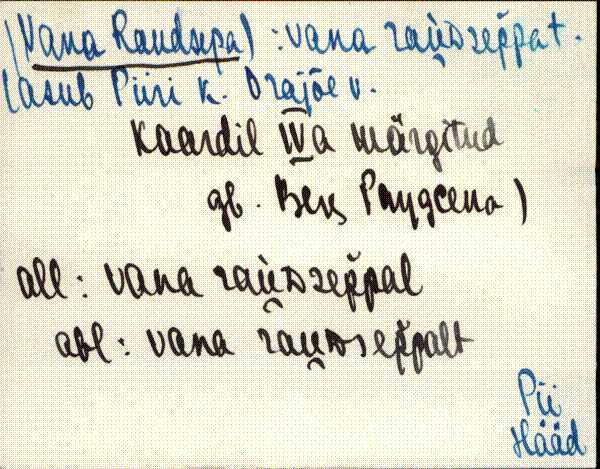 (Vana Raudsepa) : vana raùdseppat.
Lasub Piiri k. Orajõe v.
Kaardil IVa märgitud
gb. Веч Раудсепа)
all : vana raùdseppal
abl : vana raùdseppalt
Pii
Hääd